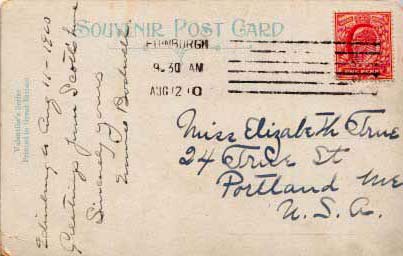 SOUVENIR POST CARD
EDINBURGH
9.30 AM
AUG 12 10
Valentine's Series
Printed in Great Britain
Edinburgh Aug 11-1910
Greetings from Scotland
Sincerely yours
Miss Elizabeth True
24 Tree St
Portland Me
U.S.A.